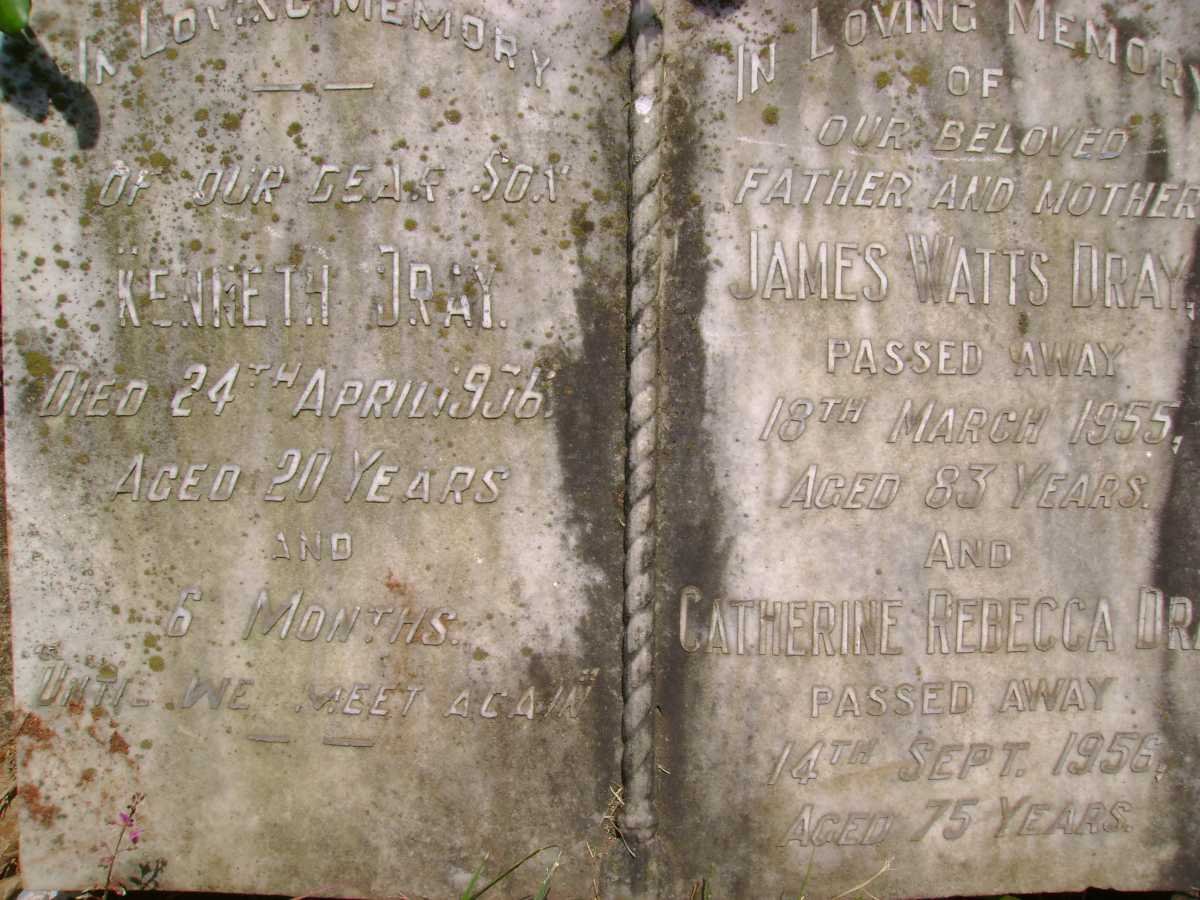 In Loving Memory
Of Our Dear Son
Kenneth Dray.
Died 24th April 1936.
Aged 20 Years
and
6 Months.
"Until we meet again"
In Loving Memory
of
our beloved
Father and Mother
James Watts Dray,
passed away
18th March 1955,
Aged 83 Years.
And
Catherine Rebecca Dra
passed away
14th Sept. 1956,
Aged 75 Years.